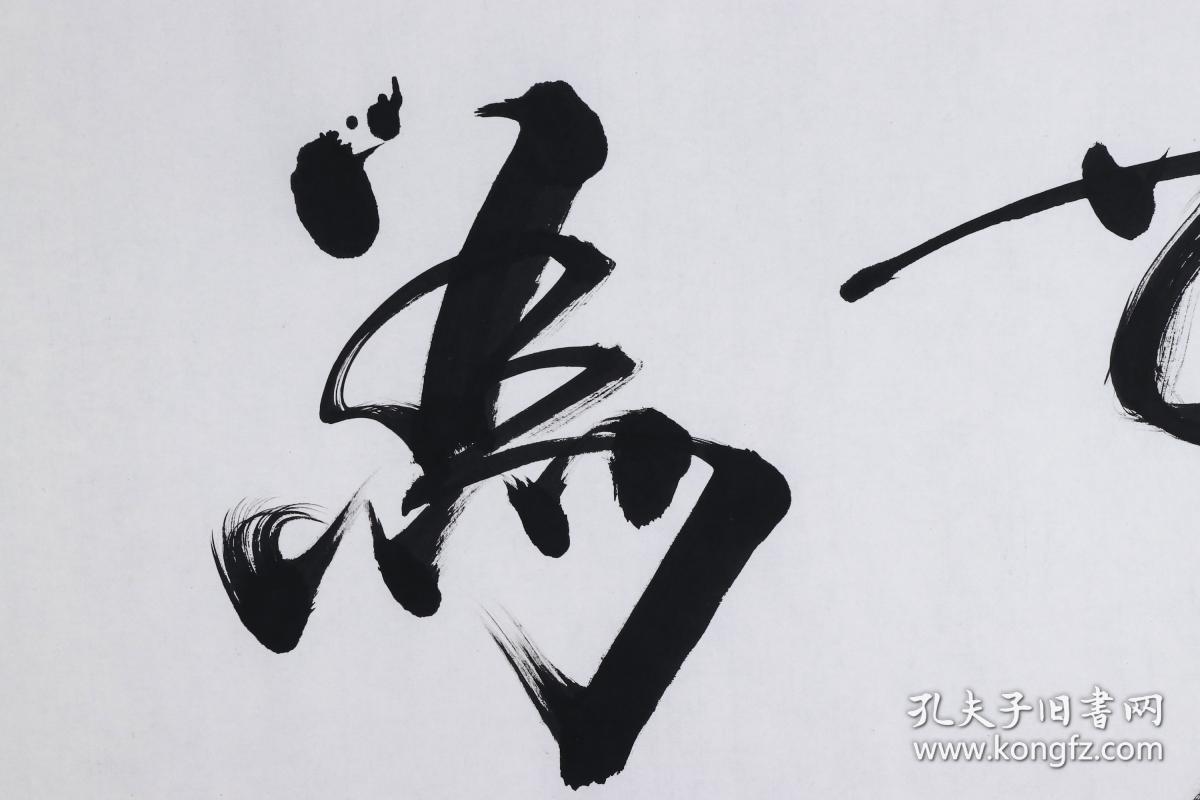 為
孔夫子旧書网
www.kongfz.com